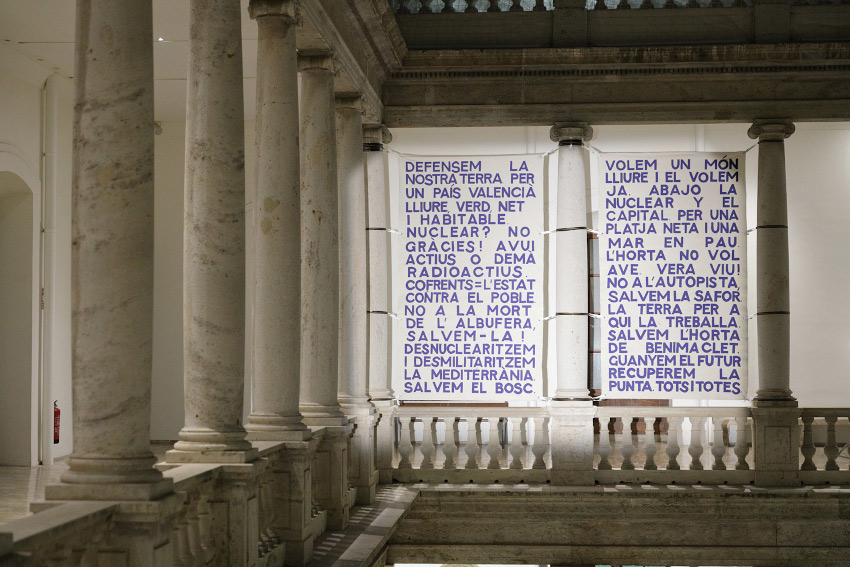 DEFENSEM LA
NOSTRA TERRA PER
UN PAÍS VALENCIÀ
LLIURE, VERD, NET
I HABITABLE
NUCLEAR? NO
GRÀCIES! AVUI
ACTIUS O DEMÀ
RADIOACTIUS.
COFRENTS=L'ESTAT
CONTRA EL POBLE
NO A LA MORT
DE L' ALBUFERA,
SALVEM-LA!
DESNUCLEARITZEM
I DESMILITARITZEM
LA MEDITERRÀNIA.
SALVEM EL BOSC.
VOLEM UN MÓN
LLIURE I EL VOLEM
JA. ABAJO LA
NUCLEAR Y EL
CAPITAL PER UNA
PLATJA NETA I UNA
MAR EN PAU.
L'HORTA NO VOL
AVE. VERA VIU!
NO A L'AUTOPISTA,
SALVEM LA SAFOR
LA TERRA PER A
QUI LA TREBALLA.
SALVEM L'HORTA
DE BENIMACLET.
GUANYEM EL FUTUR
RECUPEREM LA
PUNTA. TOTS I TOTES